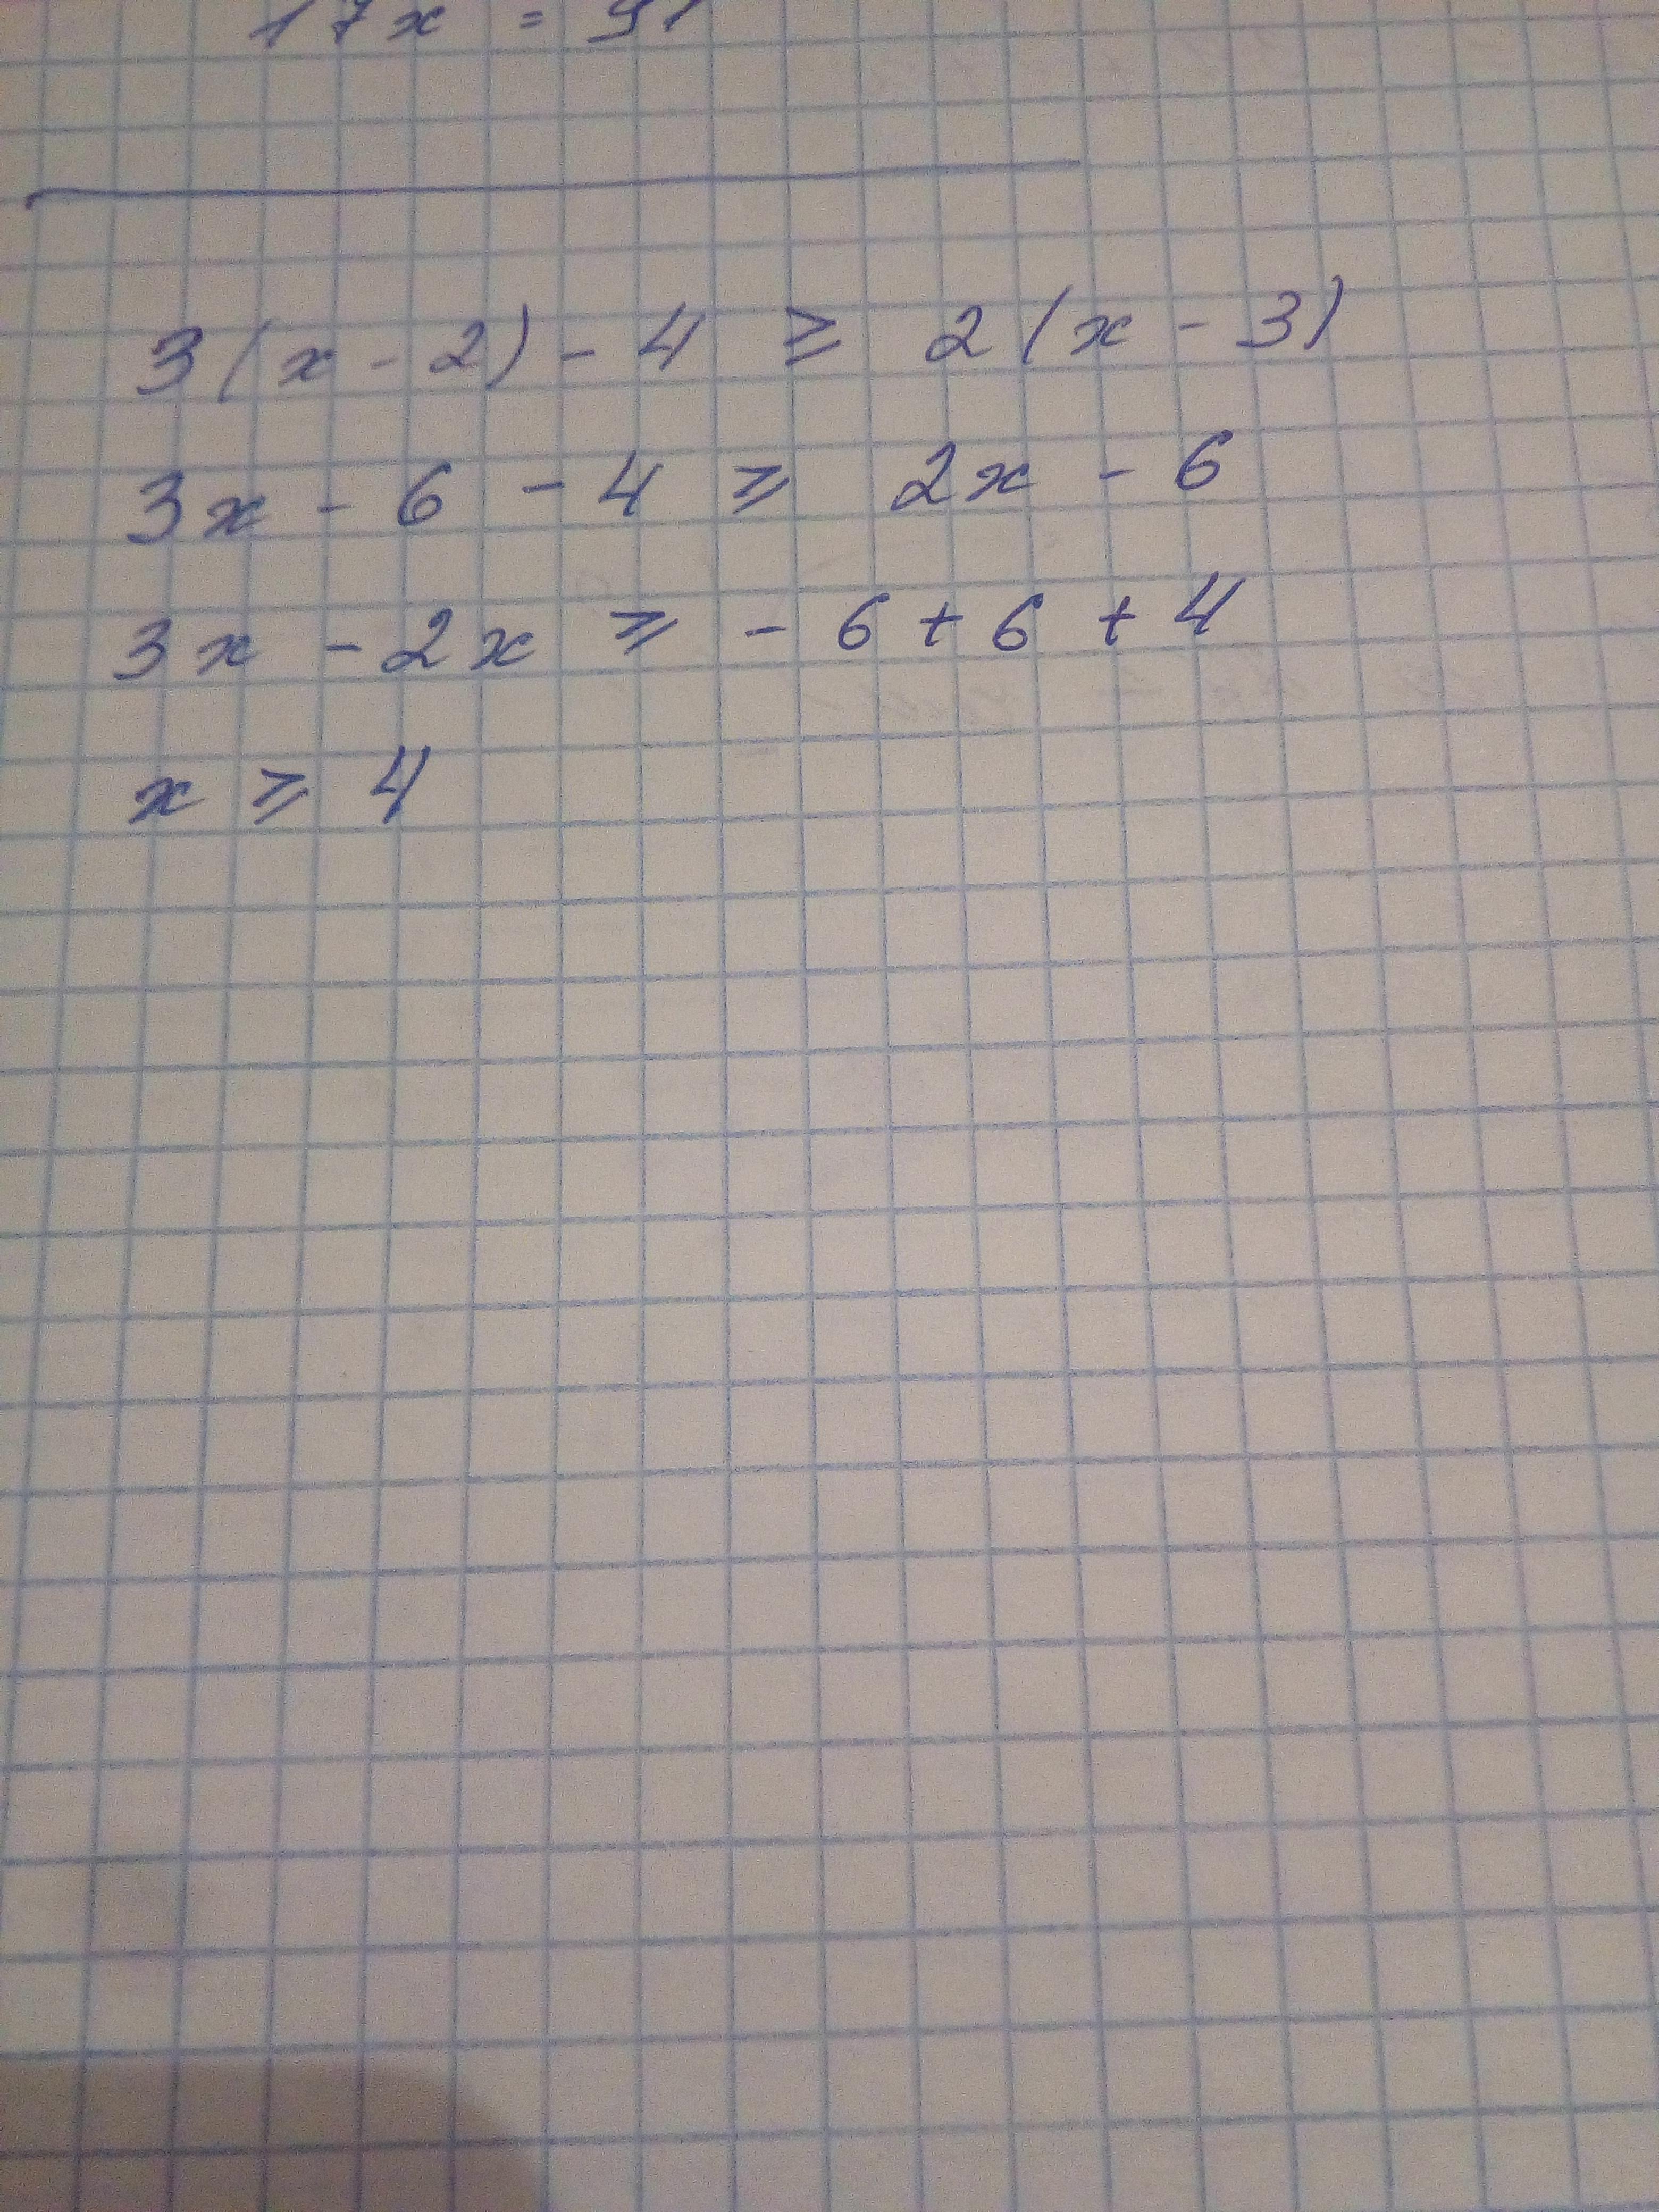 17x = 91
3(x - 2) - 4 ⩾ 2(x - 3)
3x - 6 - 4 ⩾ 2x - 6
3x - 2x ⩾ - 6 + 6 + 4
x ⩾ 4